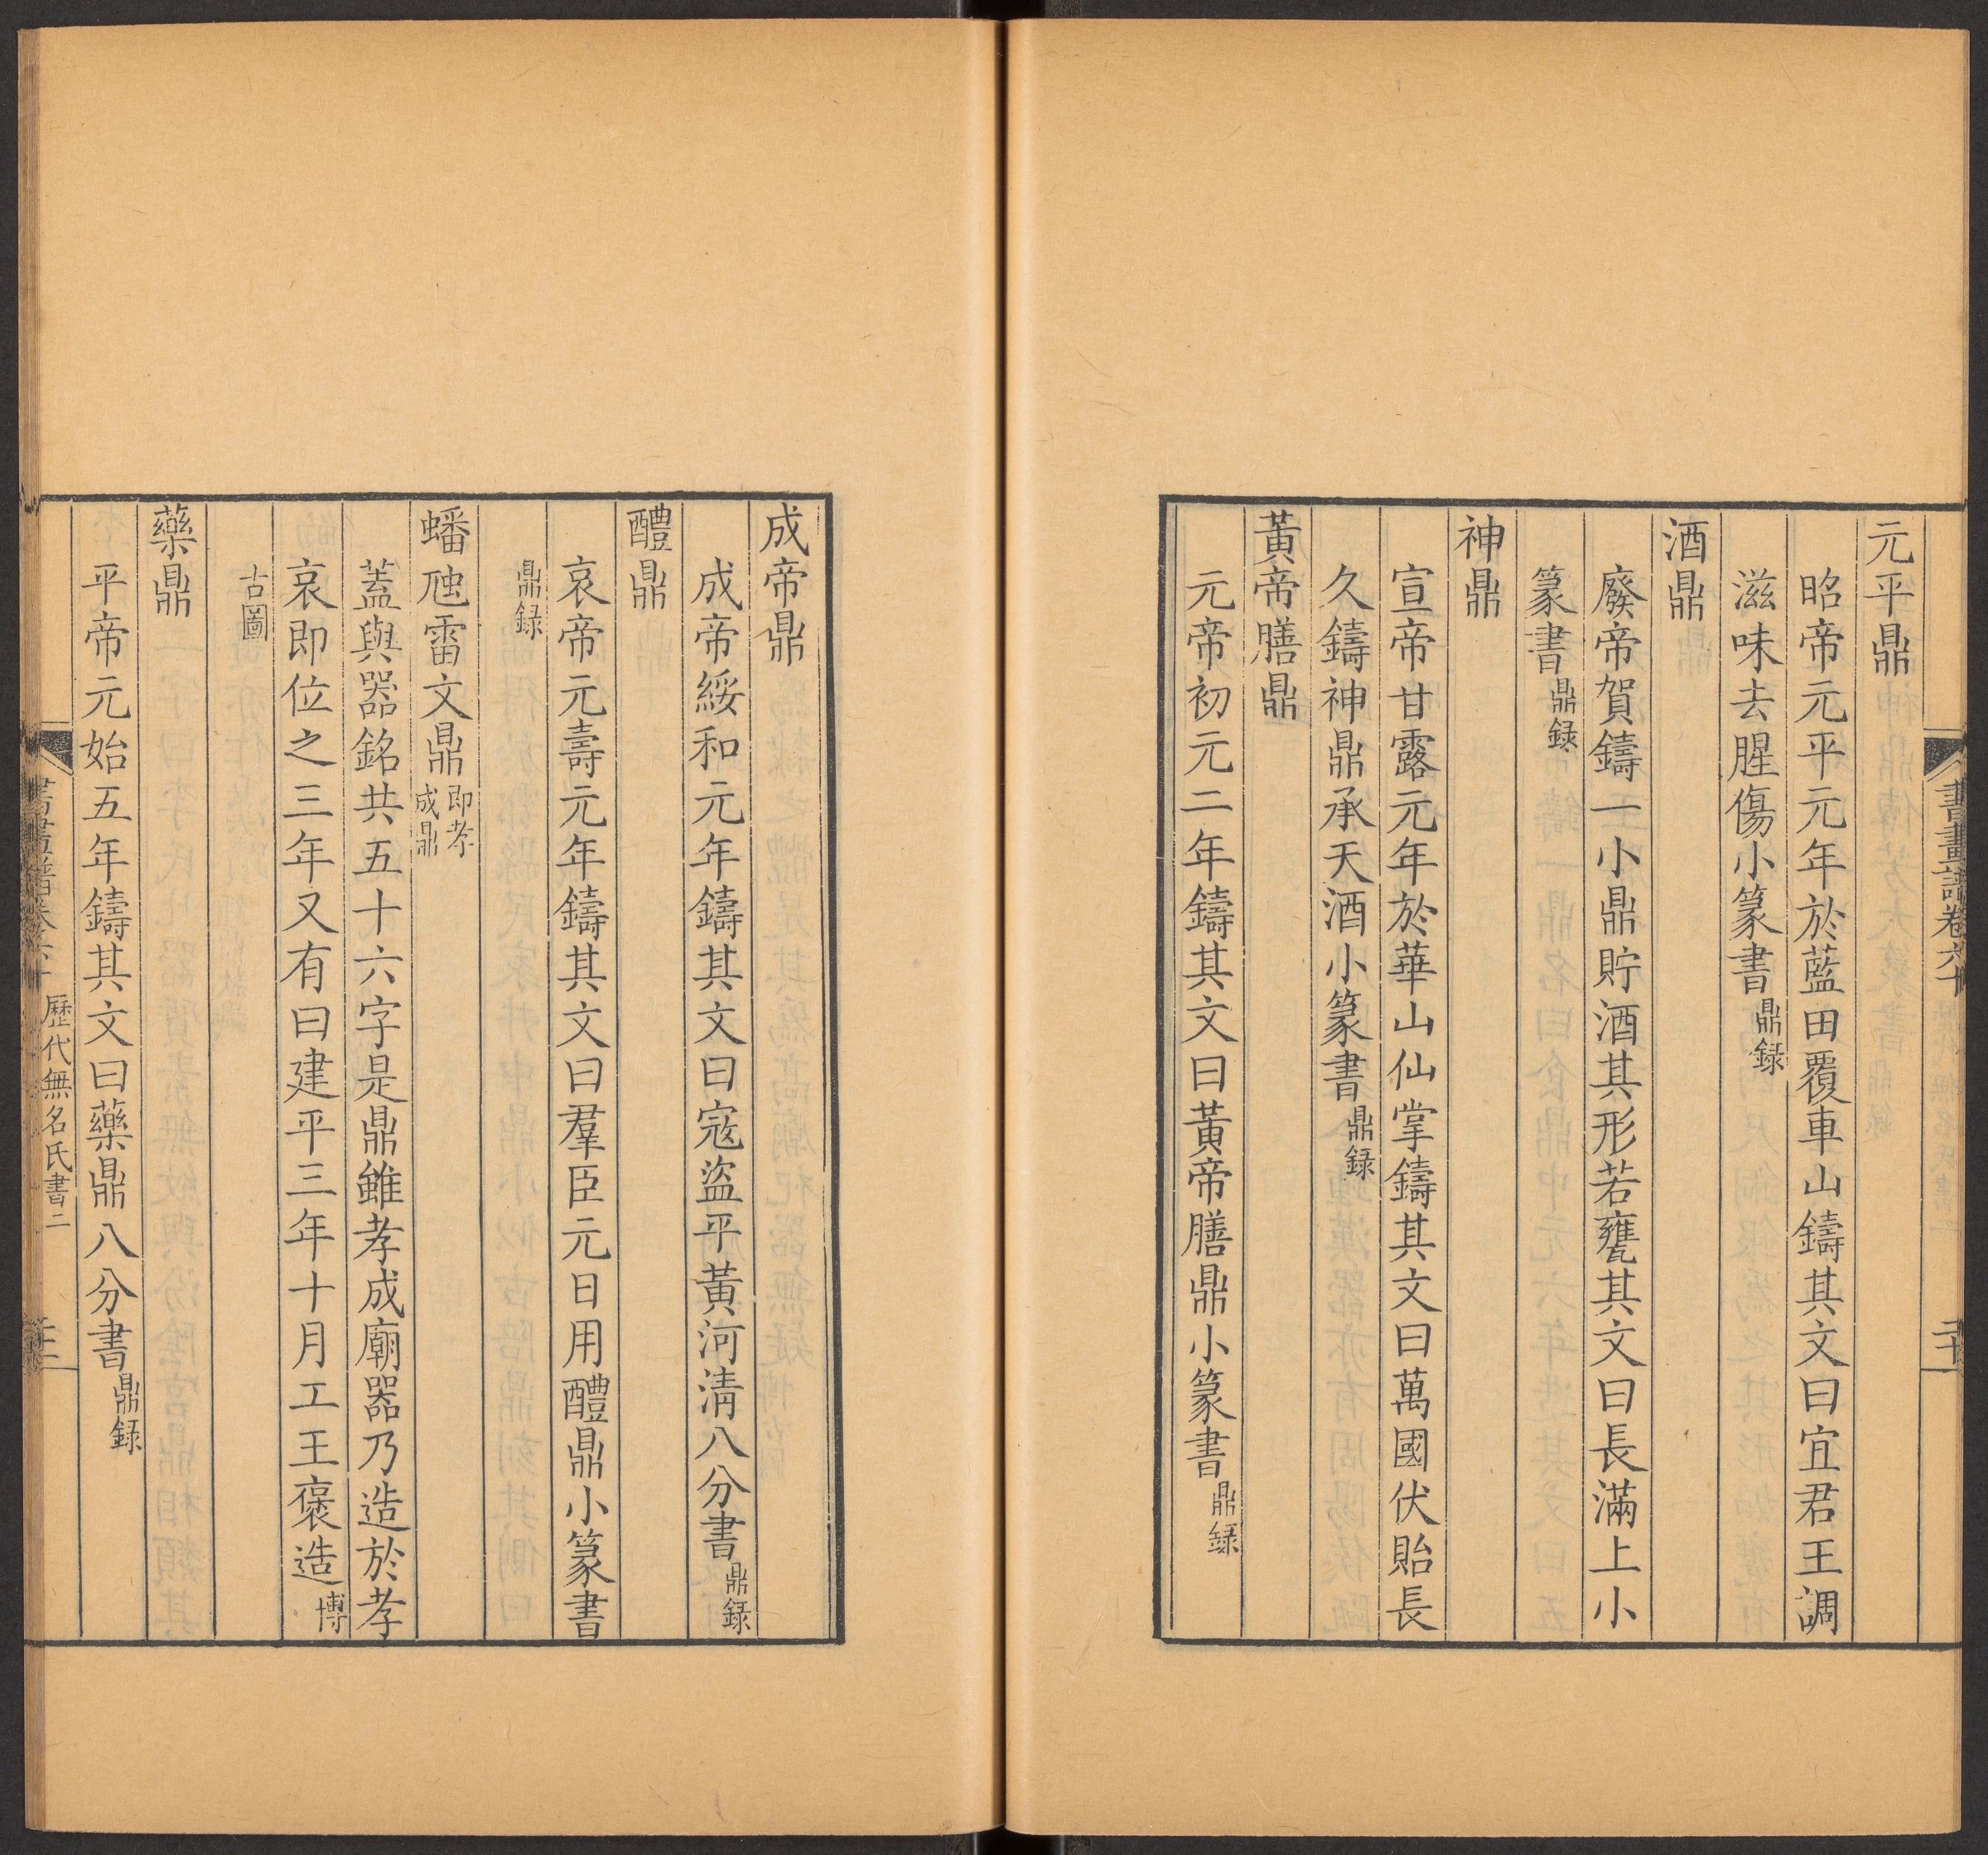 元平鼎
昭帝元平元年於藍田覆車山鑄其文曰宜君王調
滋味去腥傷小篆書鼎録
酒鼎
廢帝賀鑄一小鼎貯酒其形若甕其文曰長滿上小
篆書鼎録
神鼎
宣帝甘露元年於華山仙掌鑄其文曰萬國伏貽長
久鑄神鼎承天酒小篆書鼎録
黃帝膳鼎
元帝初元二年鑄其文曰黃帝膳鼎小篆書鼎録
書畫譜卷六十
成帝鼎
成帝綏和元年鑄其文曰寇盜平黃河清八分書鼎録
醴鼎
哀帝元壽元年鑄其文曰羣臣元日用醴鼎小篆書
鼎録
蟠虺雷文鼎即孝成鼎
蓋與器銘共五十六字是鼎雖孝成廟器乃造於孝
哀即位之三年又有曰建平三年十月工王褒造博
古圖
藥鼎
平帝元始五年鑄其文曰藥鼎八分書鼎録
書畫譜卷六十 歷代無名氏書二